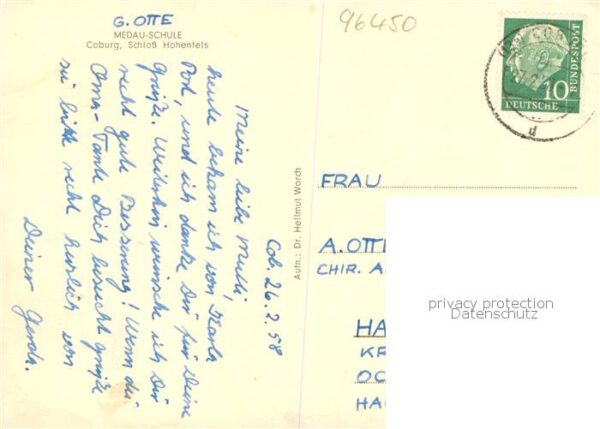 G. OTTE
MEDAU-SCHULE
Coburg, Schloß Hohenfels
96450
Cob. 26.2.58
Meine liebe Mutti,
heute bekam ich von Karla
Post, und ich danke Dir für Deine
Grüße. Weiterhin wünsche ich Dir
recht gute Besserung! Wenn du
Oma-Tante Dich besucht grüße
sie bitte recht herzlich von
Deiner
Aufn.: Dr. Hellmut Worch
DEUTSCHE
BUNDESPOST
10
d
FRAU
A. OTTE
CHIR. A
HA
KR
OC
HA
privacy protection
Datenschutz